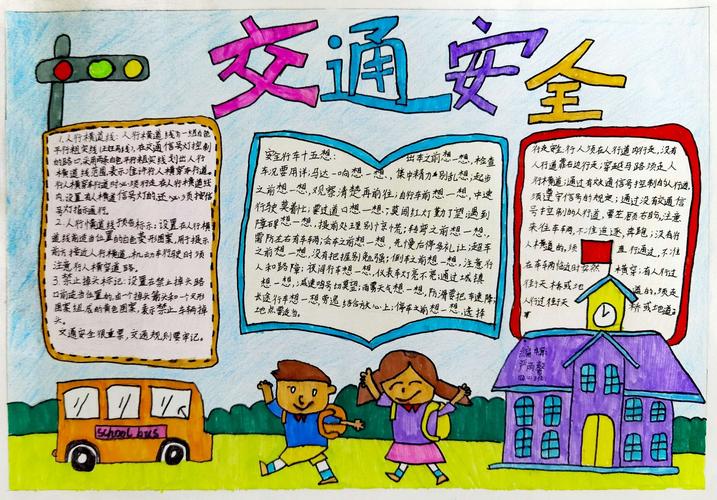 交通安全
1.人行横道线:人行横道线为一组白色
平行粗实线(斑马线),在交通信号灯控制
的路口,采用两条白色平行粗实线划出人行
横道线范围表示:准许行人横穿车行道。
行人横穿车行道时必须行走在人行横道线
内,设置有人横道信号灯的还必须按信
号灯指示通行。
2.人行横道线预告标示:设置在人行横
道线前适当位置的白色菱形图案,用于提示
前方接近人行横道,机动车行驶时须
注意行人横穿道路。
3.禁止掉头标记:设置在禁止掉头路
口前适当位置的,由一个掉头箭头和一个叉形
图案组成的黄色图案,表示禁止车辆掉
头。
交通安全很重要,交通规则要牢记。
安全行车十五想: 出车之前想一想,检查
车况要周详;马达一响想一想,集中精力别乱想;起步
之前想一想,观察清楚再前往;自行车前想一想,中速
行驶莫着忙;要过道口想一想,莫闯红灯勤了望;遇到
障碍想一想,提前处理别惊慌;转弯之前想一想,
需防左右有车辆;会车之前想一想,先慢后停多礼让;超车
之前想一想,没有把握别勉强;倒车之前想一想,注意行
人和路障;夜间行车想一想,仪表车灯亮不亮;通过城镇
想一想,减速鸣号切莫望;雨雾天气想一想,防滑要把车速降;
长途行车想一想,劳逸结合放心上;停车之前想一想,选择
地点要适当。
行走安全:行人须在人行道内行走,没有
人行道靠右边行走;穿越马路须走人
行横道;通过有交通信号控制的人行道,
须遵守信号的规定;通过没有交通信
号卡控制的人行道,要左顾右盼,注意
来往车辆,不准追逐,奔跑;没有行
人横道的,须 直行通过,不准
在车车辆临近时突然 横穿;有人行过
往于天桥或地 道的,须走
人行过往天 桥或地道
编辑
school bus